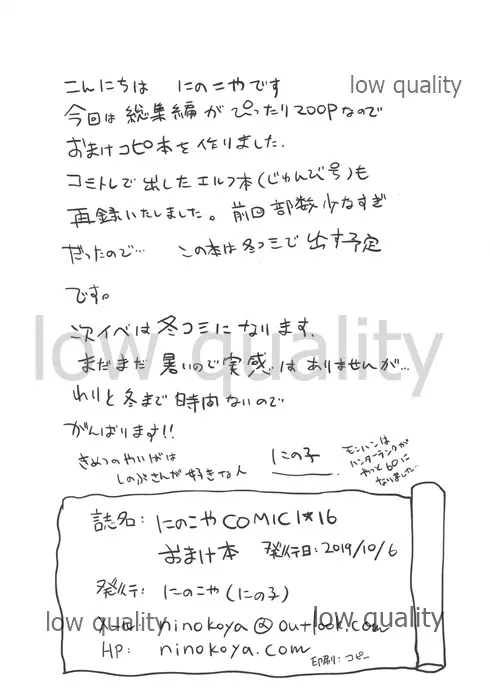 こんにちは にのこやです
low quality
今回は総集編がぴったり200Pなので
おまけコピ本を作りました.
コミトレで出したエルフ本(じゅんび号)も
再録いたしました。前回部数少なすぎ
だったので… この本は冬コミで出す予定
です。
low quality
次イベは冬コミになります.
まだまだ暑いので実感はありませんが…
わりと冬まで時間ないので
がんばります!!
きめつのやいばは
しのぶさんが好きな人
にの子
モンハンは
ハンターランクが
やっと60に
なりました
誌名: にのこやCOMIC1★16
おまけ本 発行日:2019/10/6
発行: にのこや(にの子)
low quality
low quality
メール: ninokoya@outlook.com
HP: ninokoya.com
印刷:コピー